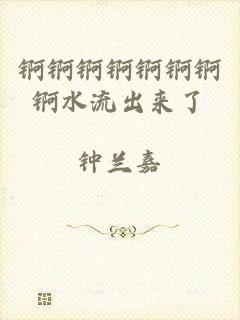 锕锕锕锕锕锕锕
锕水流出来了
钟兰嘉